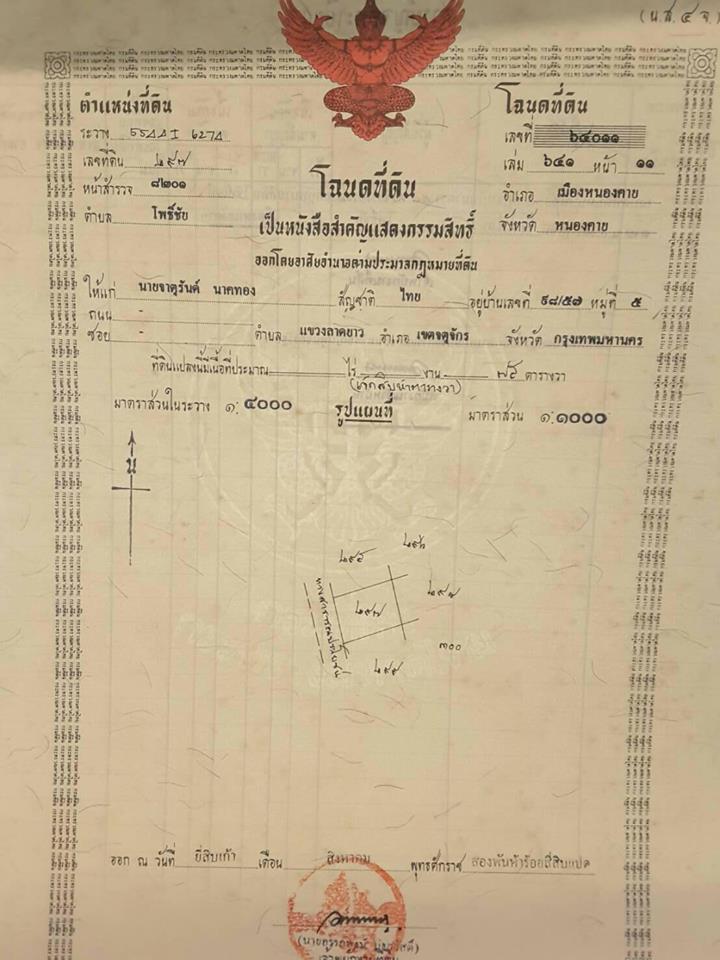 (น.ส.๔ จ.)
ตำแหน่งที่ดิน
ระวาง 5544 I 6274
เลขที่ดิน ๒๙๗
หน้าสำรวจ ๘๒๐๑
ตำบล โพธิ์ชัย
โฉนดที่ดิน
เลขที่ ๖๔๐๑๑
เล่ม ๖๔๑ หน้า ๑๑
อำเภอ เมืองหนองคาย
จังหวัด หนองคาย
โฉนดที่ดิน
เป็นหนังสือสำคัญแสดงกรรมสิทธิ์
ออกโดยอาศัยอำนาจตามประมวลกฎหมายที่ดิน
ให้แก่ นายจาตุรันต์ นาคทอง สัญชาติ ไทย อยู่บ้านเลขที่ ๙๘/๕๗ หมู่ที่ ๕
ถนน -
ซอย - ตำบล แขวงลาดยาว อำเภอ เขตจตุจักร จังหวัด กรุงเทพมหานคร
ที่ดินแปลงนี้มีเนื้อที่ประมาณ ไร่ งาน ๗๕ ตารางวา
(เจ็ดสิบห้าตารางวา)
มาตราส่วนในระวาง ๑: ๔๐๐๐ รูปแผนที่ มาตราส่วน ๑:๑๐๐๐
น
๒๙๕
๒๙๖
๒๙๗
๒๙๘
๒๙๙
๓๐๐
ทางสาธารณประโยชน์
ออก ณ วันที่ ยี่สิบเก้า เดือน สิงหาคม พุทธศักราช สองพันห้าร้อยสี่สิบแปด
เจ้าพนักงานที่ดิน